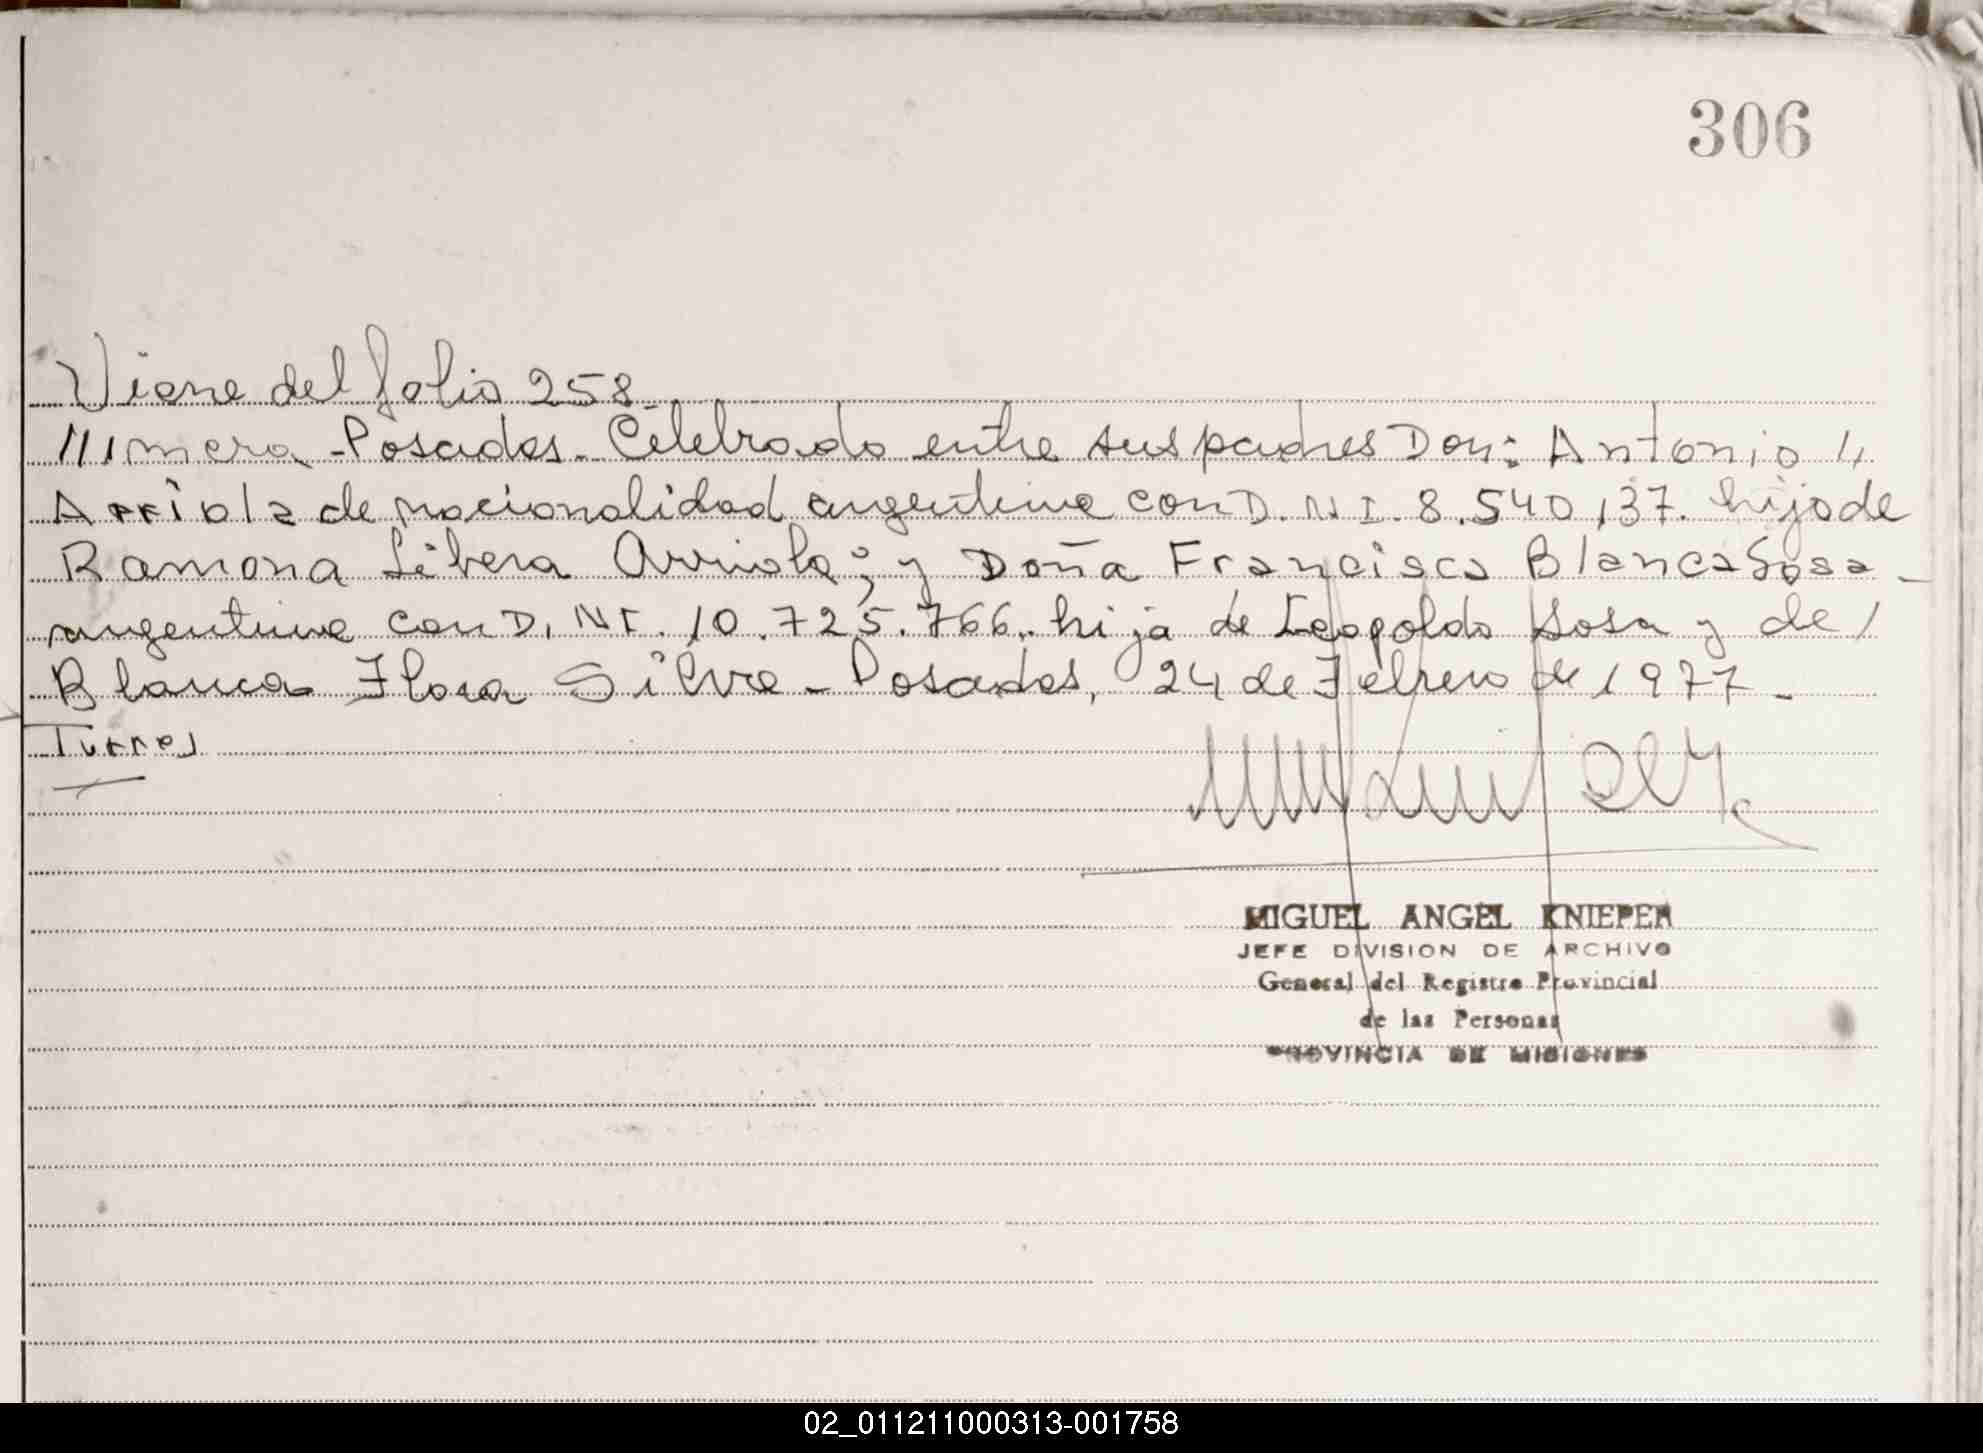 306
Viene del folio 258.
///mera - Posadas. Celebrado entre sus padres Don: Antonio //
Arriola de nacionalidad argentina con D. N I. 8.540.137. hijo de
Ramona Libera Arriola; y Doña Francisca Blanca Sosa -
argentina con D. NI. 10.725.766. hija de Leopoldo Sosa y de /
Blanca Flora Silva - Posadas, 24 de Febrero de 1977 -
Turres
MIGUEL ANGEL KNIEPER
JEFE DIVISION DE ARCHIVO
General del Registro Provincial
de las Personas
PROVINCIA DE MISIONES
02_011211000313-001758